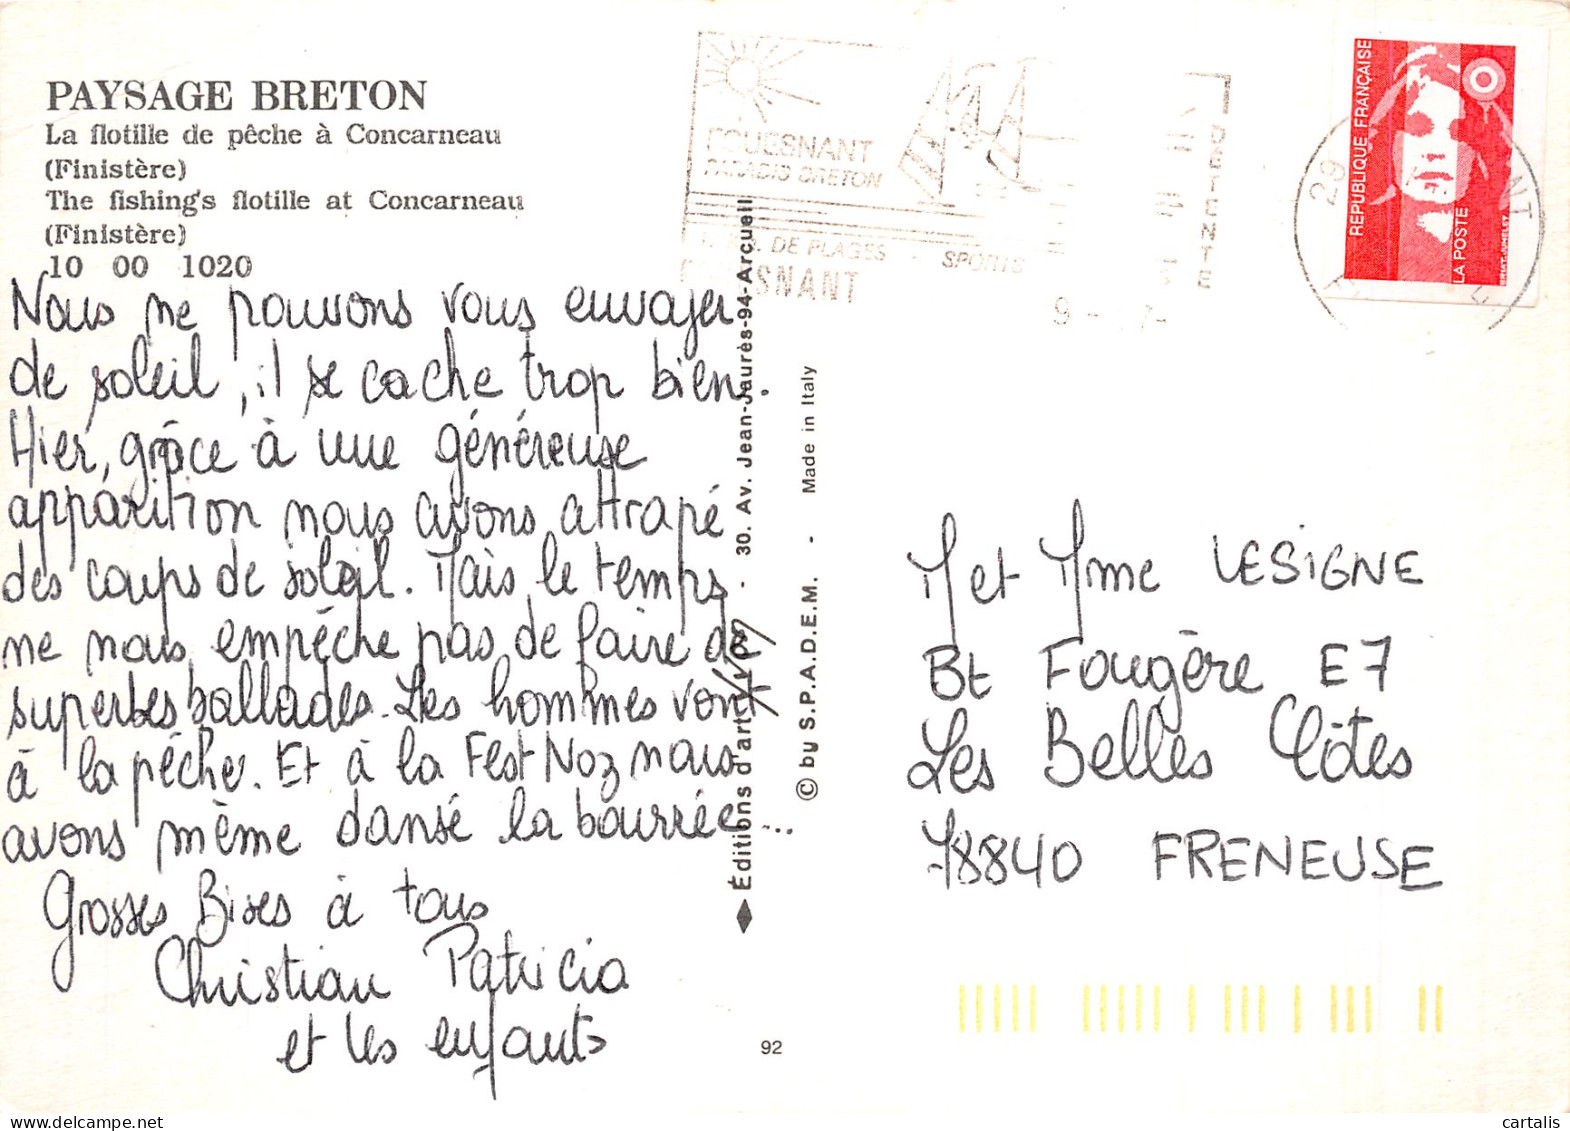 PAYSAGE BRETON
La flotille de pêche à Concarneau
(Finistère)
The fishing's flotille at Concarneau
(Finistère)
10 00 1020
Nous ne pouvons vous envoyer
de soleil, il se cache trop bien.
Hier, grâce à une généreuse
apparition nous avons attrapé
des coups de soleil. Mais le temps
ne nous empêche pas de faire de
superbes ballades. Les hommes vont
à la pêche. Et à la Fest Noz nous
avons même dansé la bourrée...
Grosses Bises à tous
Christian Patricia
et les enfants
Éditions d'art - 30. Av. Jean-Jaurès-94-Arcueil
© by S.P.A.D.E.M. - Made in Italy
92
FOUESNANT
PARADIS BRETON
DE PLAGES - SPORTS
DETENTE
29
RÉPUBLIQUE FRANÇAISE
LA POSTE
M et Mme LESIGNE
Bt Fougère E7
Les Belles Côtes
78840 FRENEUSE
cartalis